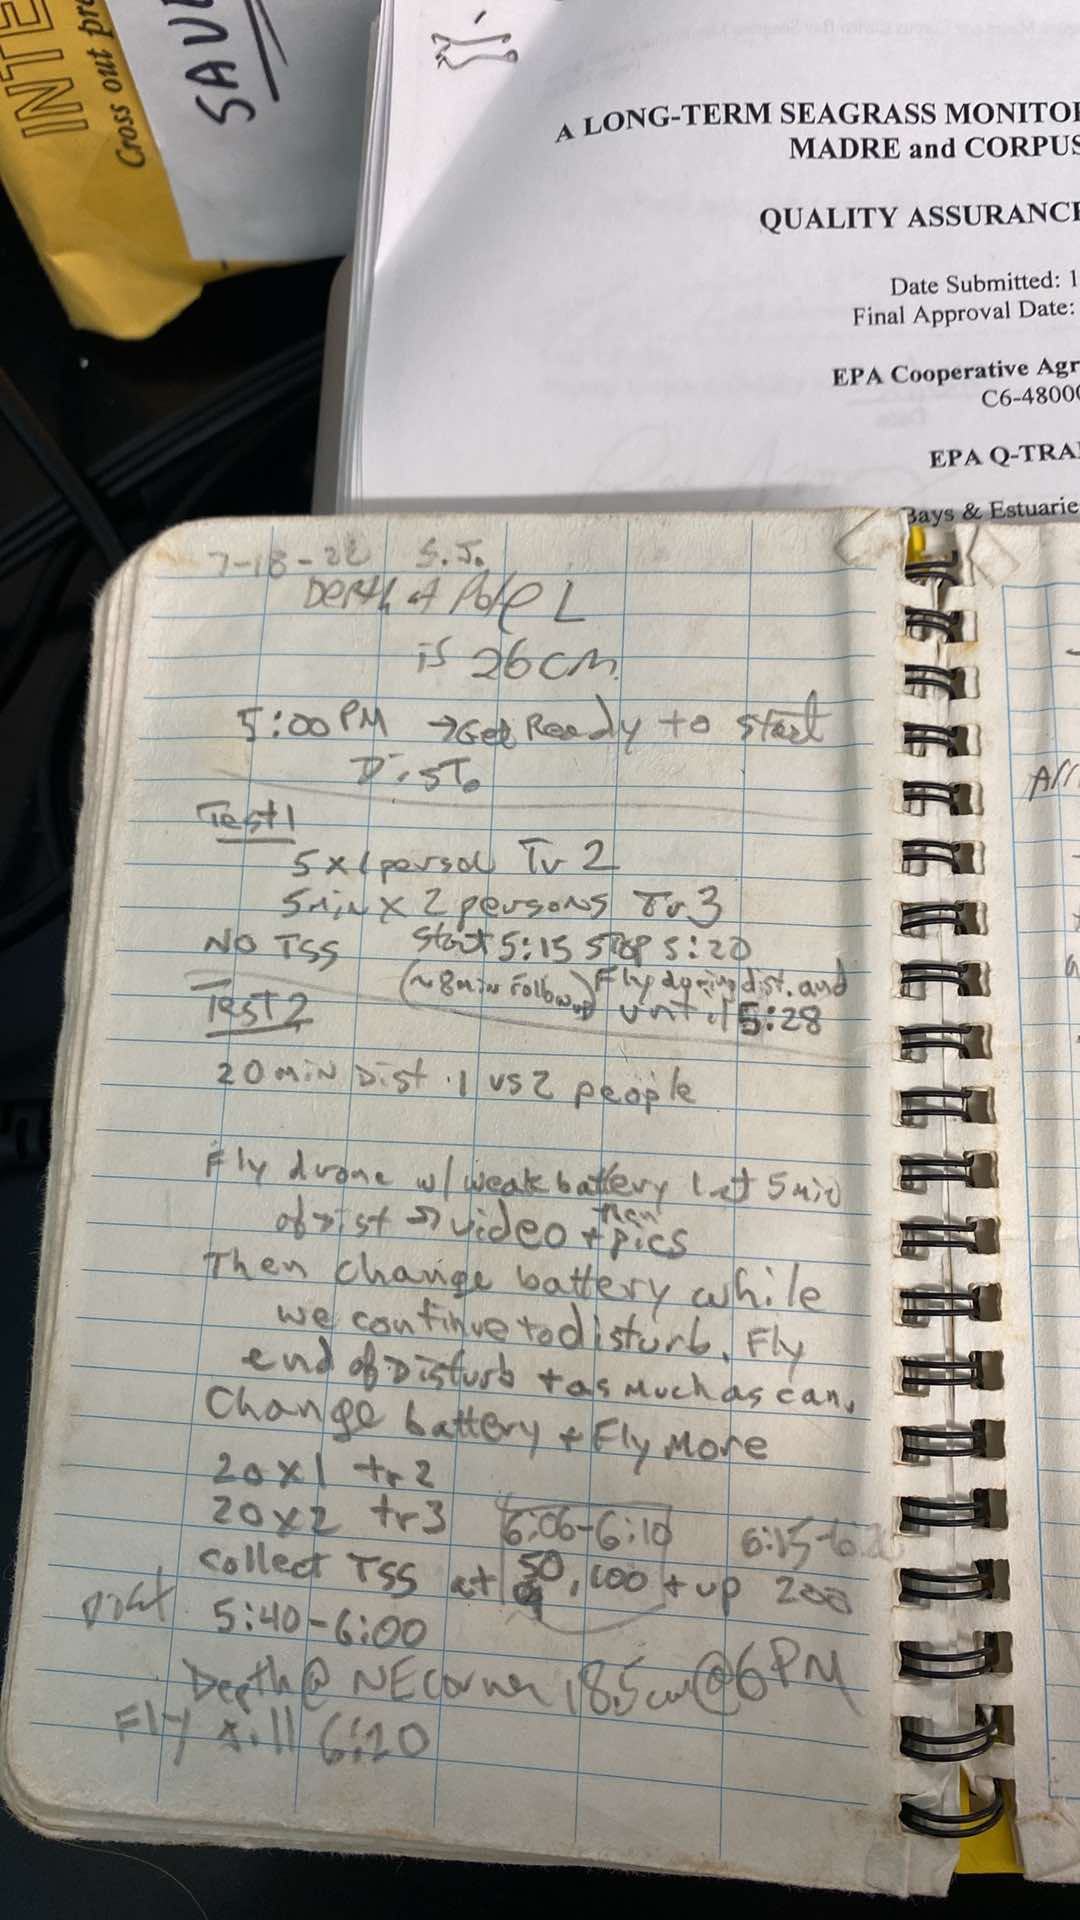 INTE
Cross out pr
SAV
A LONG-TERM SEAGRASS MONITO
MADRE and CORPUS
QUALITY ASSURANCE
Date Submitted: 1
Final Approval Date:
EPA Cooperative Agr
C6-4800
EPA Q-TRA
Bays & Estuarie
7-18-22 S.J.
Depth at Pole 1
is 26cm
5:00 PM → Get Ready to start
Dist.
Test 1
5 x 1 person Tr 2
5min x 2 persons Tr 3
NO TSS start 5:15 stop 5:20
(~8min follow up) Fly during dist. and
Test 2 until 5:28
20 min Dist. 1 vs 2 people
Fly drone w/ weak battery last 5 min
of dist → video then + pics
Then change battery while
we continue to disturb. Fly
end of Disturb + as much as can.
Change battery + Fly More
20 x 1 tr 2
20 x 2 tr 3 6:06-6:10 6:15-6:2
collect TSS at 50, 100 + up 200
Dist 5:40-6:00
Depth @ NE corner 18.5cm @ 6 PM
Fly till 6:20
Arr